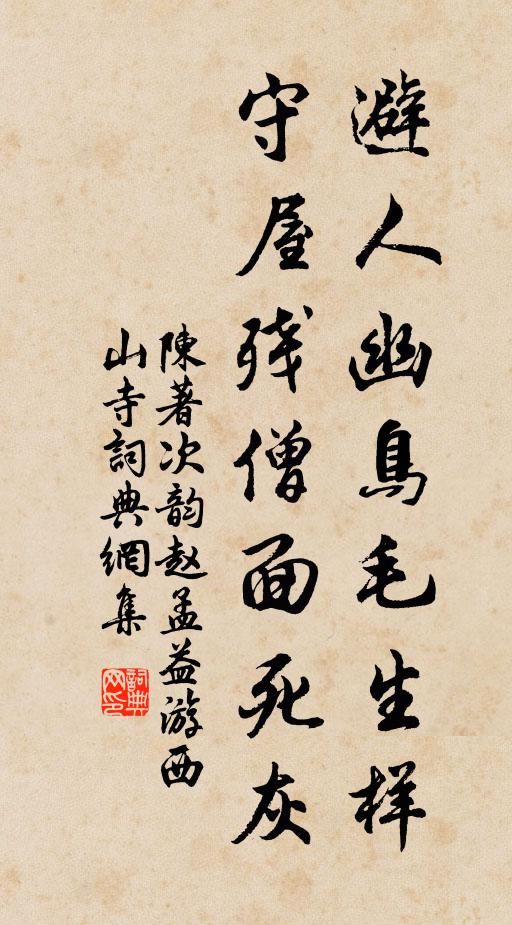 避人幽鳥毛生样
守屋残僧面死灰
陳著次韵赵孟益游西
山寺詞典網集
詞典网印